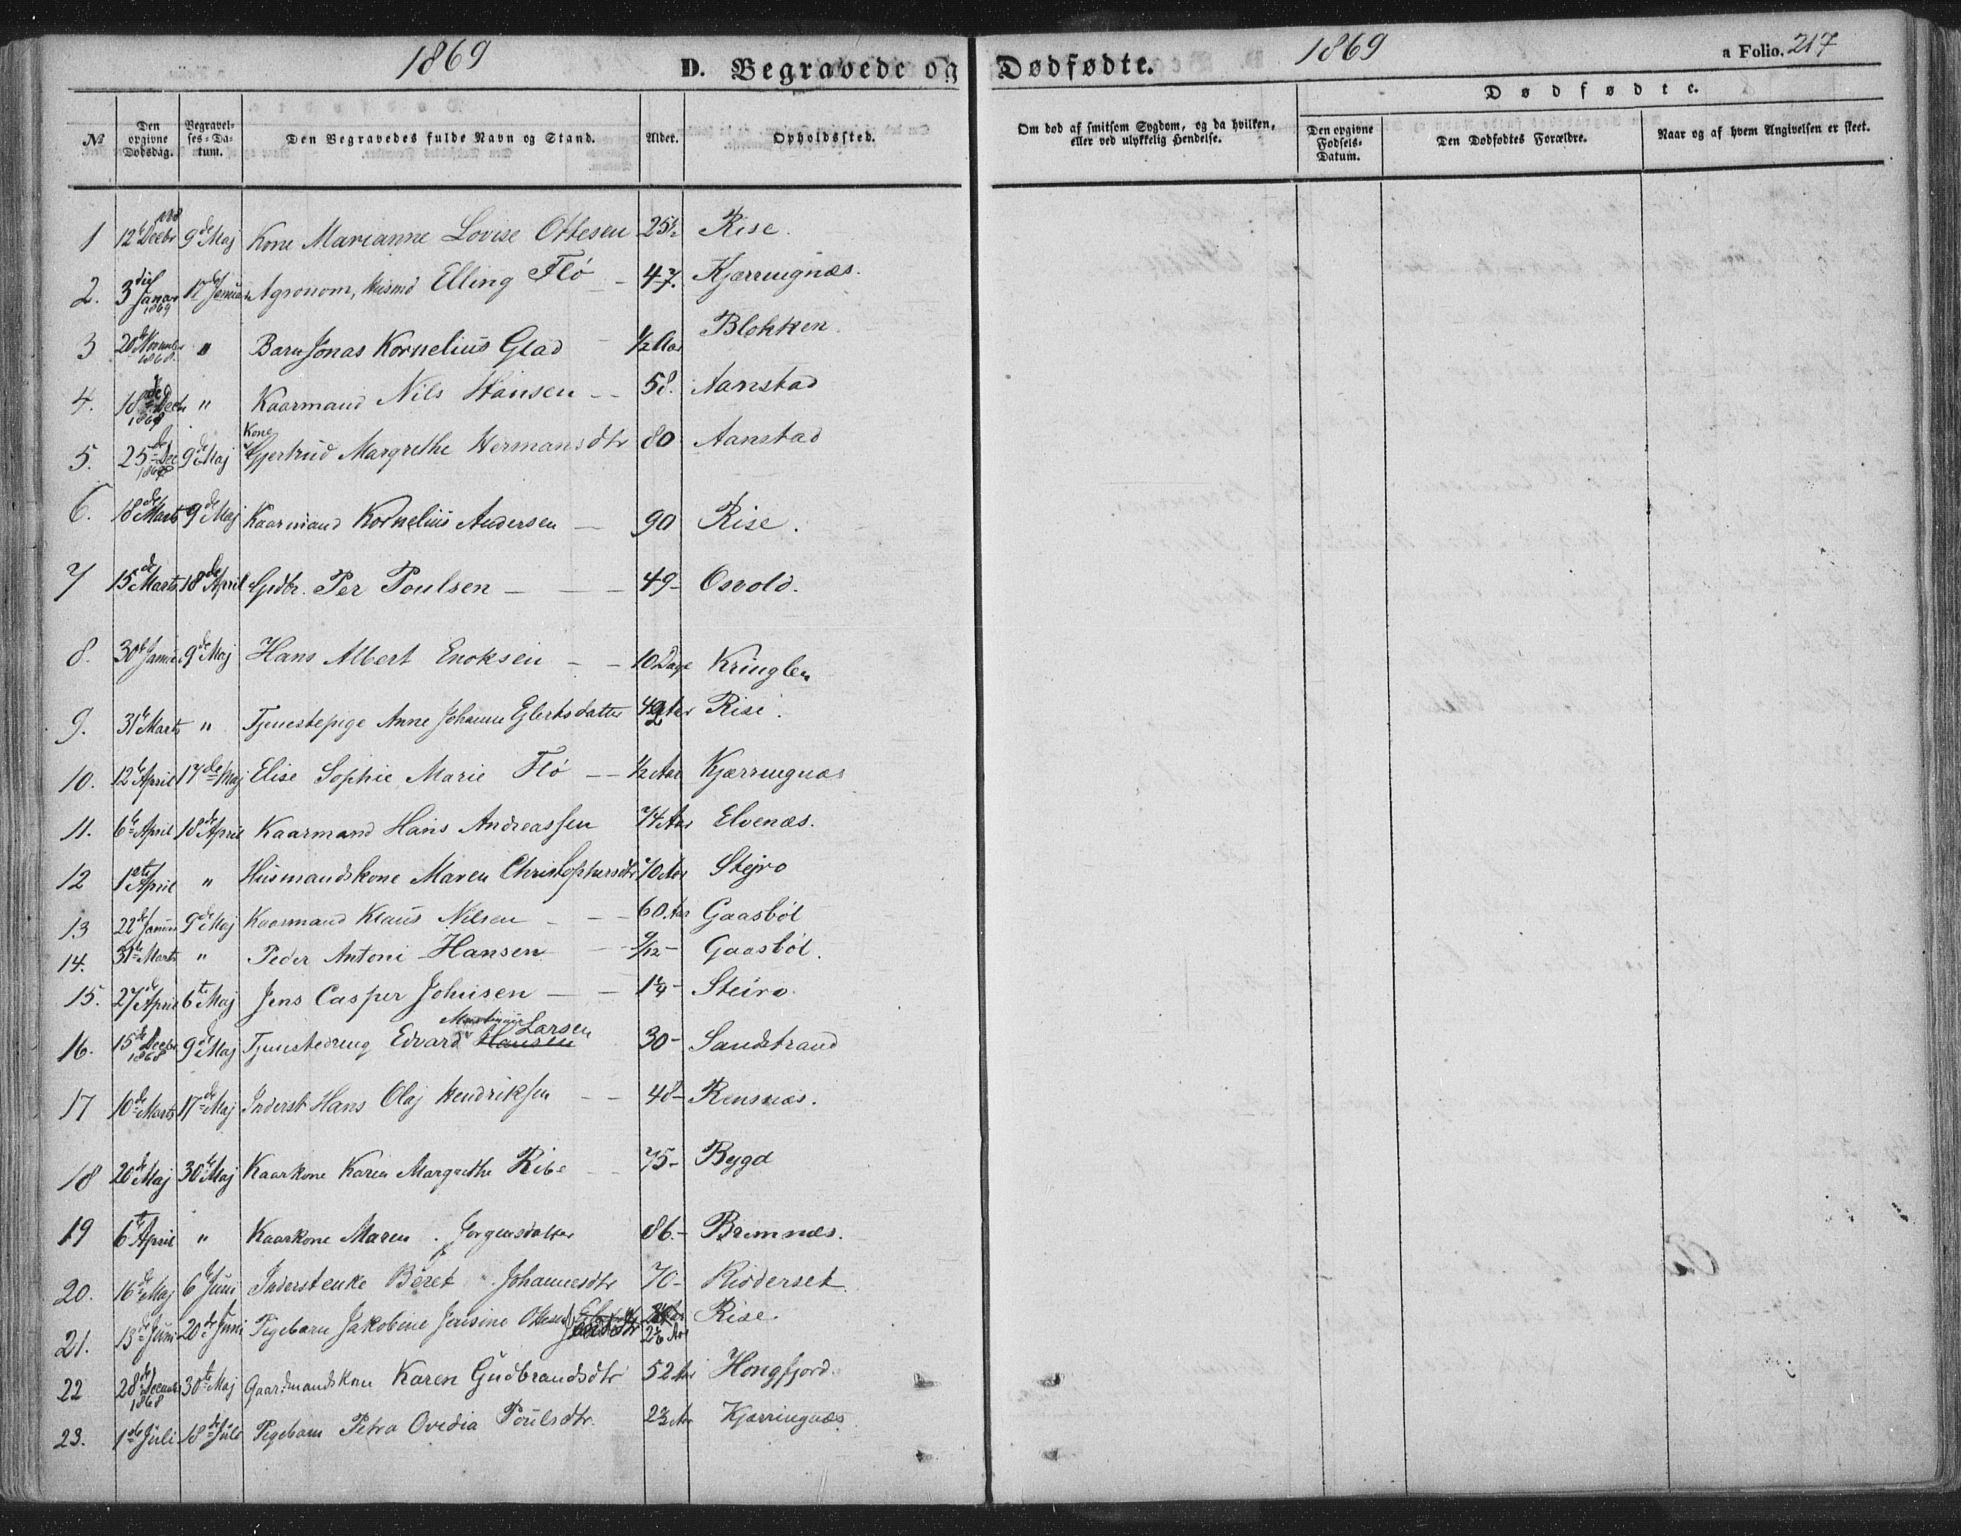 1869
D. Begravede og Dødfødte.
1869
a Folio. 217
Dødfødte.
№
Den opgivne Dødsdag.
Begravelses-Datum.
Den Begravedes fulde Navn og Stand.
Alder.
Opholdssted.
Om død af smitsom Sygdom, og da hvilken, eller ved ulykkelig Hendelse.
Den opgivne Fødsels-Datum.
Den Dødfødtes Forældre.
Naar og af hvem Angivelsen er skeet.
1 12te Decbr 9de Maj Kone Marianne Lovise Ottesen Rise.
2. 3die Januar 1869 17de Januar Agronom, Husmd Elling Flö - 47. Kjærringnæs.
3 20de November 1868. " Barn Jonas Kornelius Glad 1/2 Aar Blokken
4. 18de Decbr " Kaarmand Nils Hansen - - 58. Aanstad
5. 25de Dec 9de Maj Kone Gjertrud Margrethe Hermansdtr 80 Aanstad
6. 18de Marts 9de Maj Kaarmand Kornelius Andersen - 90 Rise.
7 15de Marts 18de April Gdbr. Per Poulsen - - - 49- Osvold.
8. 30te Januar 9de Maj Hans Albert Enoksen - - 10 Dage Kringlen
9. 31te Marts " Tjenestepige Anne Johanne Eglertsdatter Rise.
10. 12te April 17de Maj Elise Sophie Marie Flö - - 1/2 Aar Kjærringnæs
11. 6te April 18de April Kaarmand Hans Andreassen 74 Aar Elvenæs.
12 1ste April " Husmandskone Maren Christophersdtr 70 Aar Stejro
13 22de Januar 9de Maj Kaarmand Klaus Nilsen - - - 60 Aar Gaasböl
14. 31te Marts " Peder Antoni Hansen - 9/12 - Gaasböl.
15. 27de April 6te Maj Jens Casper Johnsen - - Steiro
16. 15de Decbr 1868 9de Maj Tjenestedreng Edvard Martinus Larsen Hansen 30- Sandstrand
17 10de Marts 17de Maj Inderst Hans Olaj Hendriksen - - 48- Rensnæs.
18 20de Maj 30te Maj Kaarkone Karen Margrethe Ribe - 75- Bygd
19 6te April " Kaarkone Maren Jørgensdatter 86.- Bremnæs.
20. 16de Maj 6te Juni Inderstenke Beret Johannesdtr 70- Kidderset
21. 13de Juni 20de Juni Pigebarn Jakobine Jensine Ottesen Rise.
22 28de Decbr 1868 30te Maj Gaardmandskone Karen Gudbrandsdtr 52 Aar Hongfjord.
23. 1ste Juli 18de Juli Pigebarn Petra Ovedia Poulsdtr. Kjærringnæs